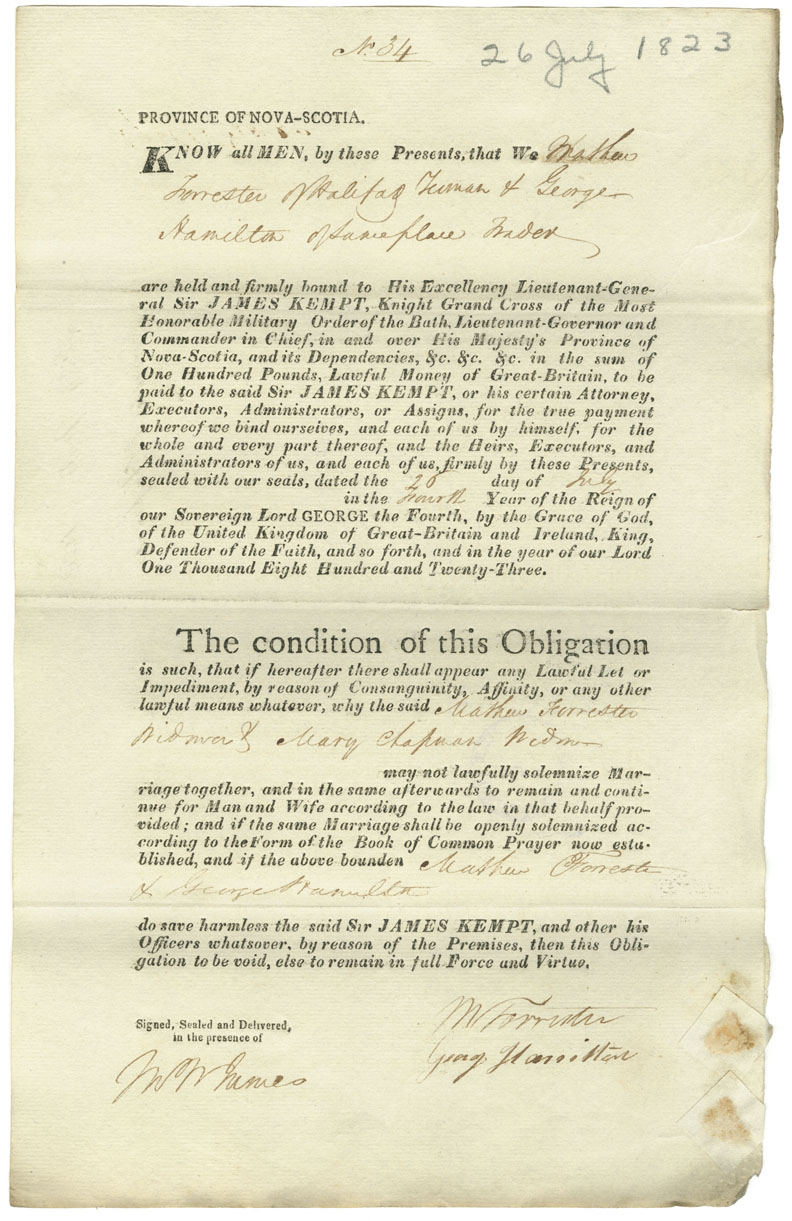 No. 34
26 July 1823
PROVINCE OF NOVA-SCOTIA.
KNOW all MEN, by these Presents, that We Mathew
Forrester of Halifax & George
Hamilton of same place Trader
are held and firmly bound to His Excellency Lieutenant-Gene-
ral Sir JAMES KEMPT, Knight Grand Cross of the Most
Honorable Military Order of the Bath, Lieutenant-Governor and
Commander in Chief, in and over His Majesty's Province of
Nova-Scotia, and its Dependencies, &c. &c. &c. in the sum of
One Hundred Pounds, Lawful Money of Great-Britain, to be
paid to the said Sir JAMES KEMPT, or his certain Attorney,
Executors, Administrators, or Assigns, for the true payment
whereof we bind ourselves, and each of us by himself, for the
whole and every part thereof, and the Heirs, Executors, and
Administrators of us, and each of us, firmly by these Presents,
sealed with our seals, dated the 26 day of July
in the Fourth Year of the Reign of
our Sovereign Lord GEORGE the Fourth, by the Grace of God,
of the United Kingdom of Great-Britain and Ireland, King,
Defender of the Faith, and so forth, and in the year of our Lord
One Thousand Eight Hundred and Twenty-Three.
The condition of this Obligation
is such, that if hereafter there shall appear any Lawful Let or
Impediment, by reason of Consanguinity, Affinity, or any other
lawful means whatever, why the said Mathew Forrester
Widower & Mary Chapman Widow
may not lawfully solemnize Mar-
riage together, and in the same afterwards to remain and conti-
nue for Man and Wife according to the law in that behalf pro-
vided; and if the same Marriage shall be openly solemnized ac-
cording to the Form of the Book of Common Prayer now esta-
blished, and if the above bounden Mathew Forrester
& George Hamilton
do save harmless the said Sir JAMES KEMPT, and other his
Officers whatsover, by reason of the Premises, then this Obli-
gation to be void, else to remain in full Force and Virtue.
Signed, Sealed and Delivered,
in the presence of
M Forrester
George Hamilton
James